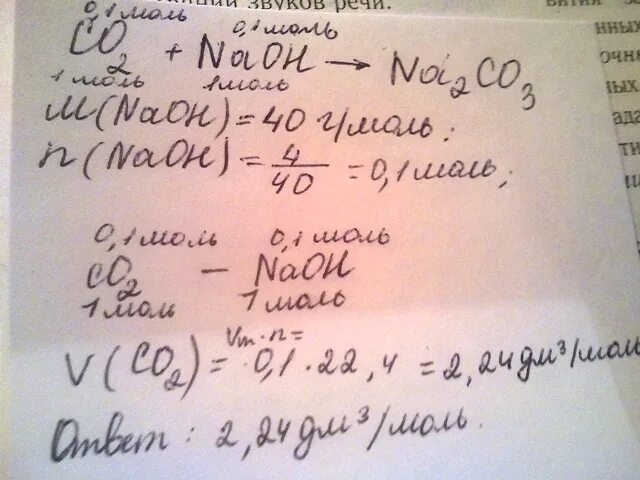 звуков речи.
0,1 моль 0,1 моль
CO2 + NaOH → Na2CO3
1 моль 1 моль
M(NaOH) = 40 г/моль;
n(NaOH) = 4/40 = 0,1 моль;
0,1 моль 0,1 моль
CO2 — NaOH
1 моль 1 моль
Vm·n=
V(CO2) = 0,1·22,4 = 2,24 дм³/моль
Ответ: 2,24 дм³/моль.